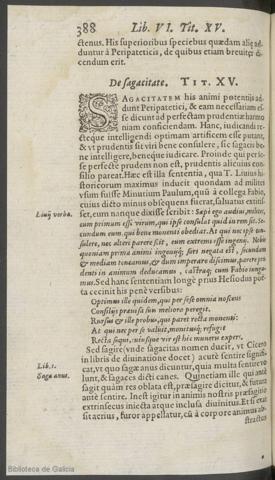 388 Lib. VI. Tit. XV.
ctenus. His superioribus speciebus quædam aliæ ad-
duntur à Peripateticis, de quibus etiam breuiter di-
cendum erit.
De sagacitate. TIT. XV.
SAGACITATEM his animi potentijs ad-
dunt Peripatetici, & eam necessariam es-
se dicunt ad perfectam prudentiæ harmo
niam conficiendam. Hanc, iudicandi re-
cteque intelligendi optimam artificem esse putant,
& vt prudentis sit viri bene consulere, sic sagacis be-
ne intelligere, beneque iudicare. Proinde qui per se-
se perfectè prudens non est, prudentis alicuius con-
silio pareat. Hæc est illa sententia, qua T. Liuius hi-
storicorum maximus inducit quondam ad milites
vsum fuisse Minutium Paulum, quò à collega Fabio,
cuius dicto minus obsequens fuerat, saluatus extitis-
Liuij verba.
set, cum nanque dixisse scribit: Sæpe ego audiui, milites,
eum primum esse virum, qui ipse consulat quid in rem sit. Se-
cundum eum, qui bene monenti obediat. At qui nec ipse con-
sulere, nec alteri parere scit, eum extremi esse ingenij. Nobis
quoniam prima animi ingenijque sors negata est, secundam
& mediam teneamus, & dum imperare discimus, parere pru-
denti in animum deducamus, castraque cum Fabio iunga-
mus. Sed hanc sententiam longè prius Hesiodus poë-
ta cecinit his penè versibus:
Optimus ille quidem, qui per sese omnia noscens
Consilijs præuisa suis meliora peregit.
Rursus & ille probus, qui paret recta monenti:
At qui nec per se valuit, monitusque refugit
Recta sequi, nimis hic vir est hic muneris expers.
Sed sagire (vnde sagacitas nomen ducit, vt Cicero
Lib. 1.
in libris de diuinatione docet) acutè sentire signifi-
Sagæ anus.
cat, vt quo sagæ anus dicuntur, quia multa sentire ve
lunt, & sagaces dicti canes. Quinetiam ille qui ante
sagit quàm res oblata est, præsagire dicitur, & futura
antè sentire. Inest igitur in animis nostris præsagitio
extrinsecus iniecta atque inclusa diuinitus. Et si exar
sit acrius, furor appellatur, cùm à corpore animus ab-
stractus
Biblioteca de Galicia